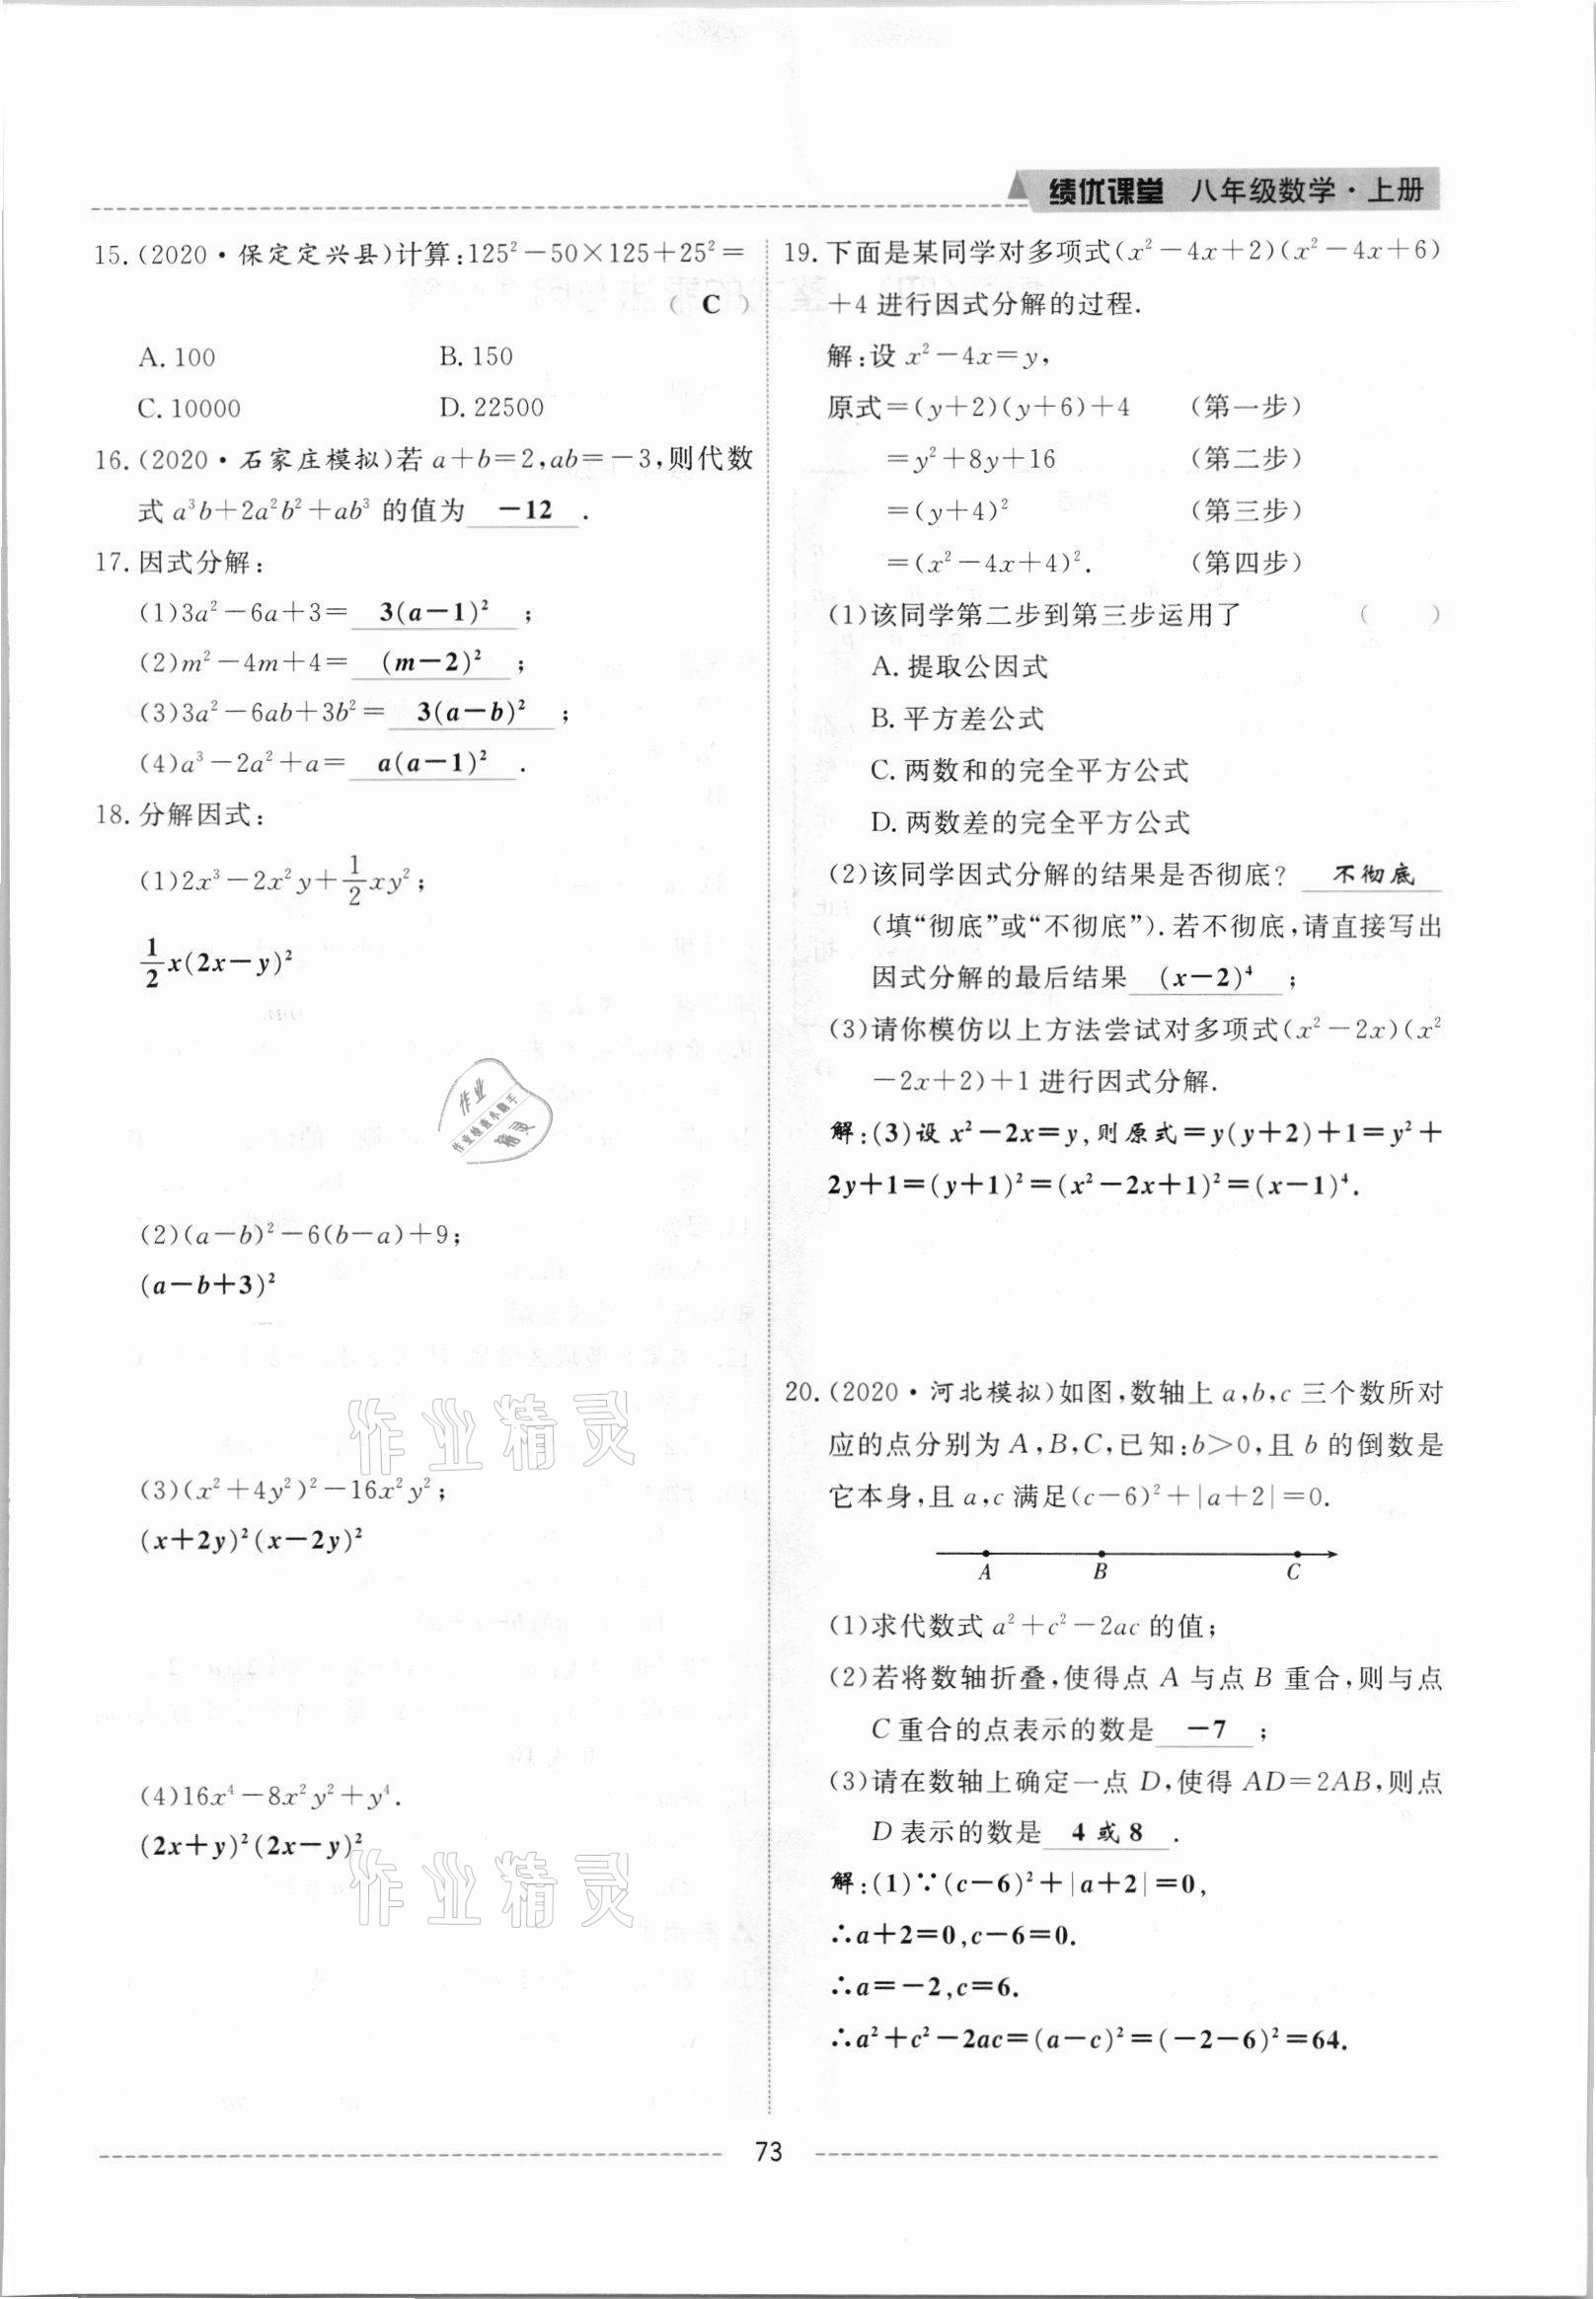 绩优课堂 八年级数学·上册
15.(2020·保定定兴县)计算:125²－50×125＋25²＝
( C )
A.100 B.150
C.10000 D.22500
16.(2020·石家庄模拟)若 a＋b＝2,ab＝－3,则代数
式 a³b＋2a²b²＋ab³ 的值为 －12 .
17.因式分解:
(1)3a²－6a＋3＝ 3(a－1)² ;
(2)m²－4m＋4＝ (m－2)² ;
(3)3a²－6ab＋3b²＝ 3(a－b)² ;
(4)a³－2a²＋a＝ a(a－1)² .
18.分解因式:
(1)2x³－2x²y＋1/2xy²;
1/2x(2x－y)²
(2)(a－b)²－6(b－a)＋9;
(a－b＋3)²
(3)(x²＋4y²)²－16x²y²;
(x＋2y)²(x－2y)²
(4)16x⁴－8x²y²＋y⁴.
(2x＋y)²(2x－y)²
19.下面是某同学对多项式(x²－4x＋2)(x²－4x＋6)
＋4 进行因式分解的过程.
解:设 x²－4x＝y,
原式＝(y＋2)(y＋6)＋4 (第一步)
＝y²＋8y＋16 (第二步)
＝(y＋4)² (第三步)
＝(x²－4x＋4)². (第四步)
(1)该同学第二步到第三步运用了 ( )
A.提取公因式
B.平方差公式
C.两数和的完全平方公式
D.两数差的完全平方公式
(2)该同学因式分解的结果是否彻底? 不彻底
(填“彻底”或“不彻底”).若不彻底,请直接写出
因式分解的最后结果 (x－2)⁴ ;
(3)请你模仿以上方法尝试对多项式(x²－2x)(x²
－2x＋2)＋1 进行因式分解.
解:(3)设 x²－2x＝y,则原式＝y(y＋2)＋1＝y²＋
2y＋1＝(y＋1)²＝(x²－2x＋1)²＝(x－1)⁴.
20.(2020·河北模拟)如图,数轴上 a,b,c 三个数所对
应的点分别为 A,B,C,已知:b＞0,且 b 的倒数是
它本身,且 a,c 满足(c－6)²＋|a＋2|＝0.
A B C
(1)求代数式 a²＋c²－2ac 的值;
(2)若将数轴折叠,使得点 A 与点 B 重合,则与点
C 重合的点表示的数是 －7 ;
(3)请在数轴上确定一点 D,使得 AD＝2AB,则点
D 表示的数是 4 或 8 .
解:(1)∵(c－6)²＋|a＋2|＝0,
∴a＋2＝0,c－6＝0.
∴a＝－2,c＝6.
∴a²＋c²－2ac＝(a－c)²＝(－2－6)²＝64.
作业
作业检查小助手
精灵
作业精灵
作业精灵
73